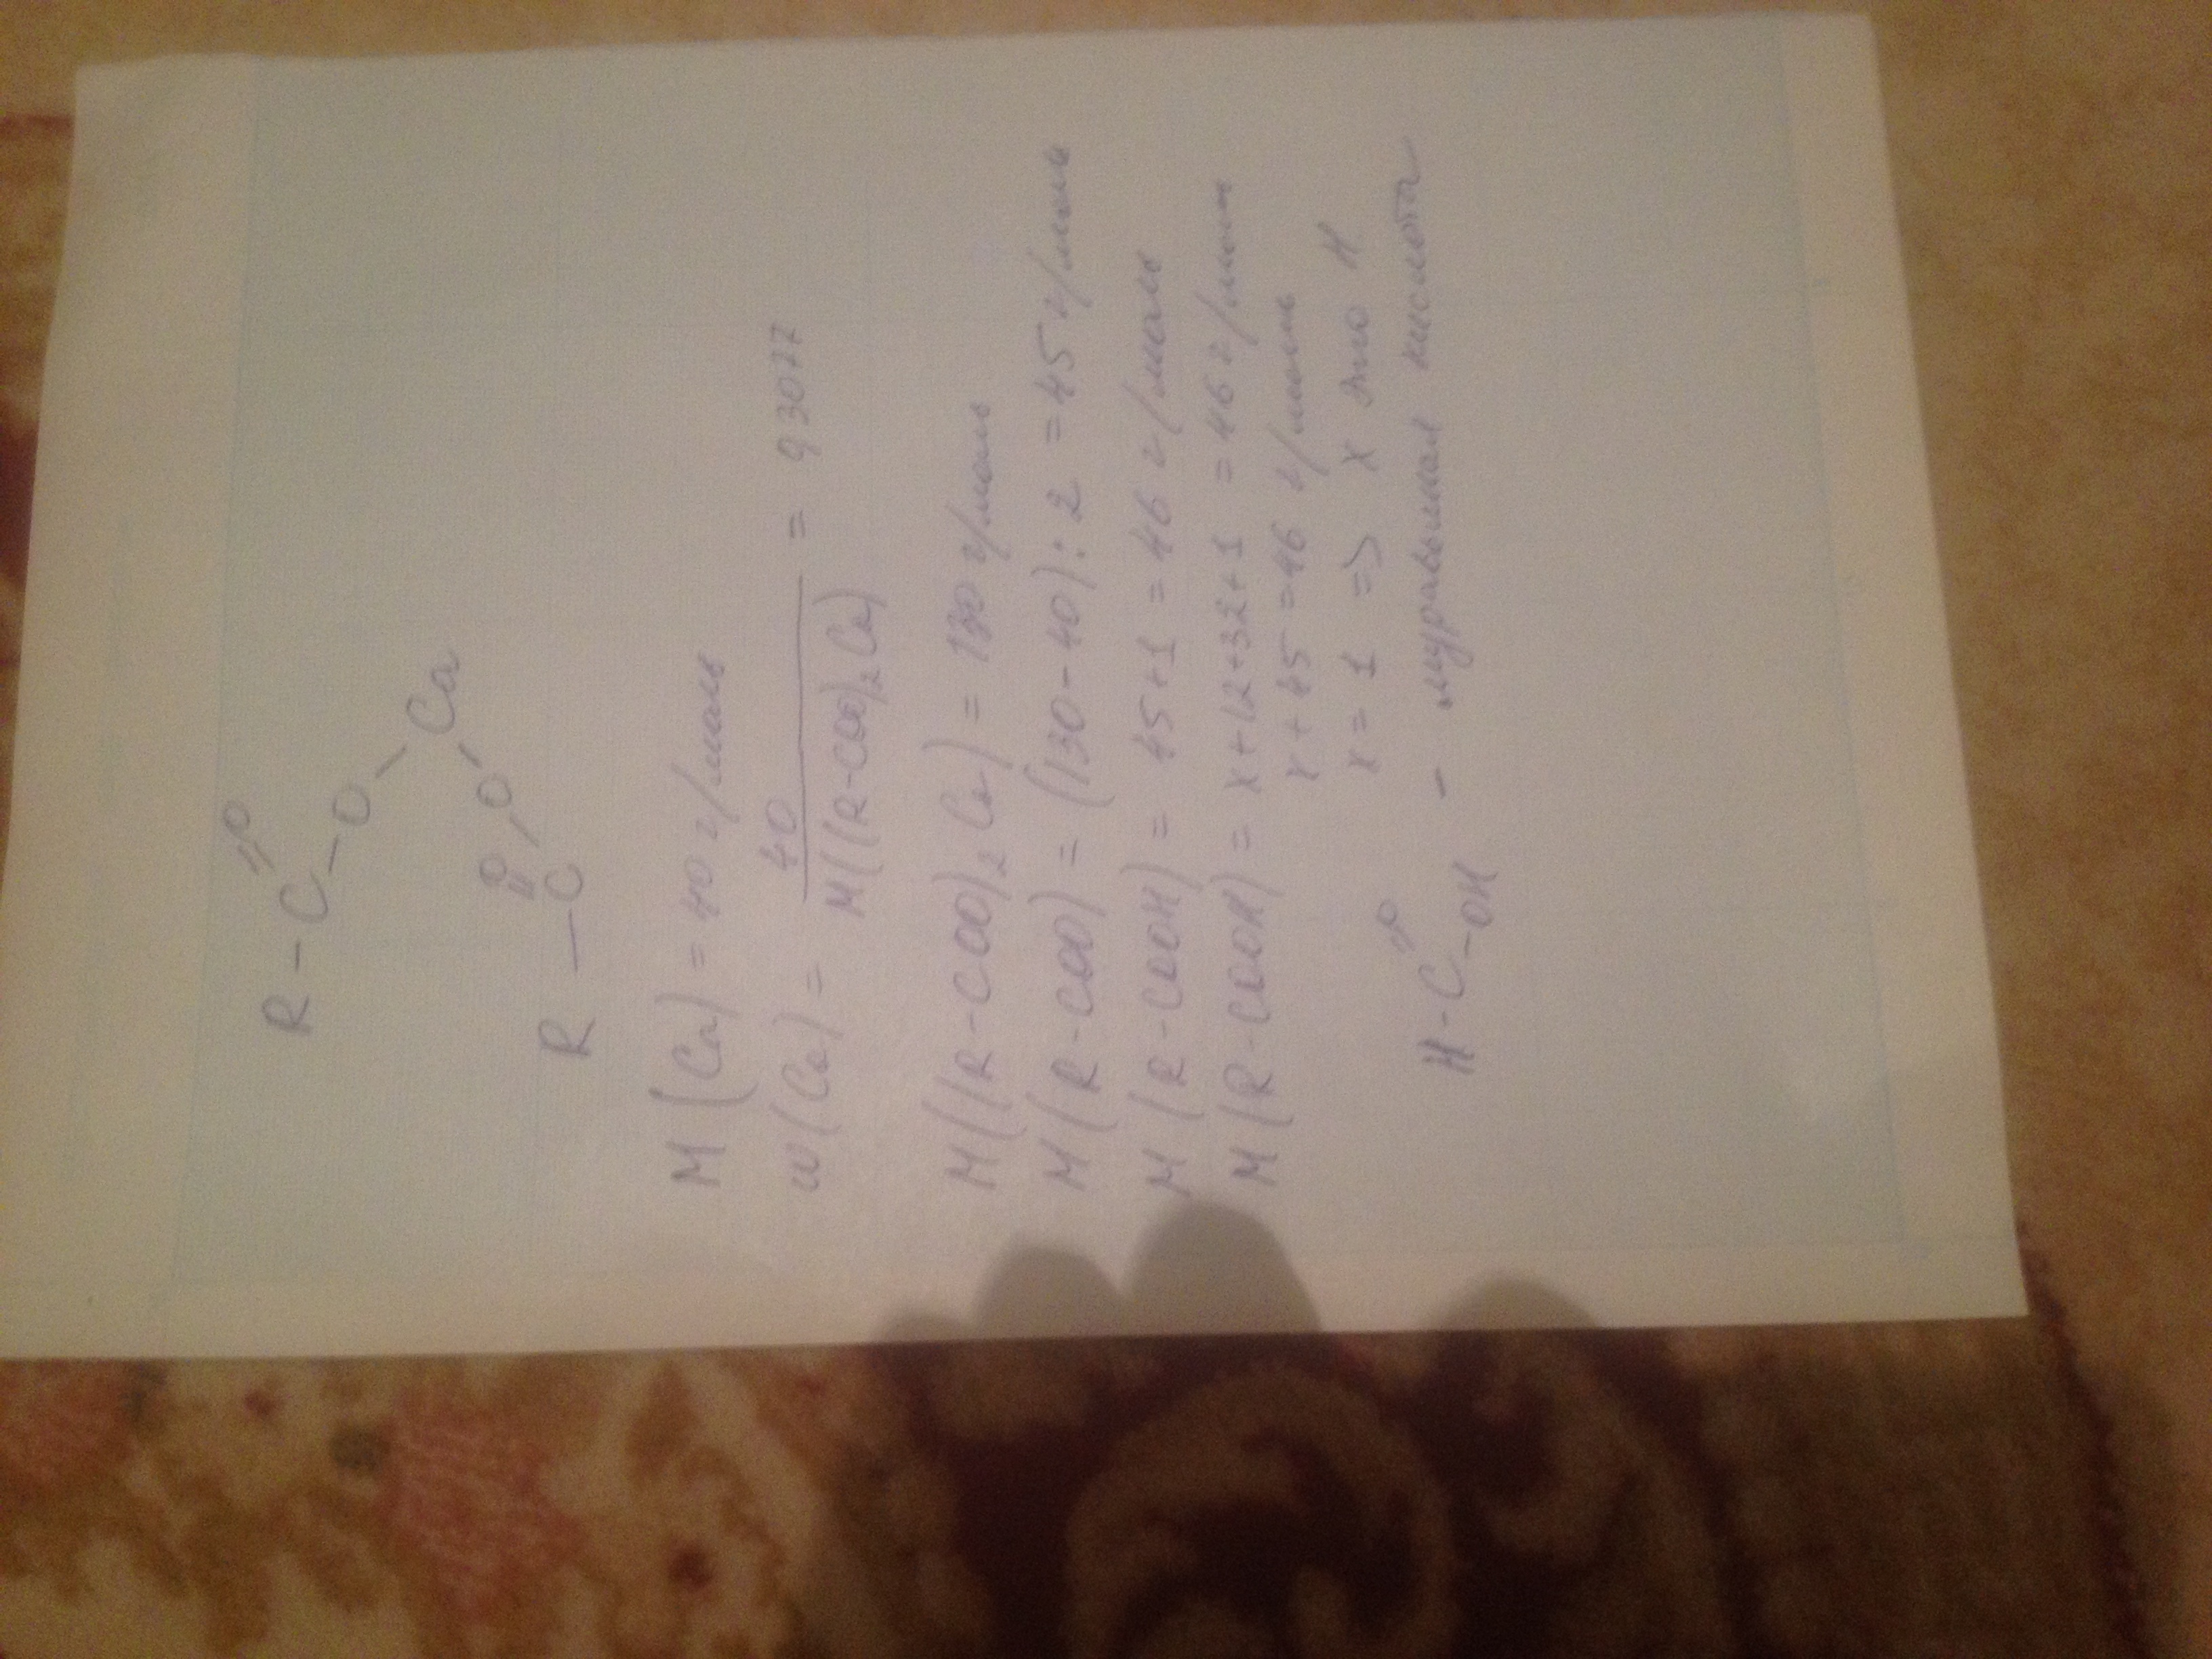 R - C =O
- O - Ca
R - C =O - O -
M (Ca) = 40 г/моль
w (Ca) = 40 / M((R-COO)₂Ca) = 0,3077
M((R-COO)₂Ca) = 130 г/моль
M(R-COO) = (130-40):2 = 45 г/моль
M(R-COOH) = 45+1 = 46 г/моль
M(R-COOH) = x+12+32+1 = 46 г/моль
x+45=46 г/моль
x=1 => x это H
H-C =O -OH - муравьиная кислота